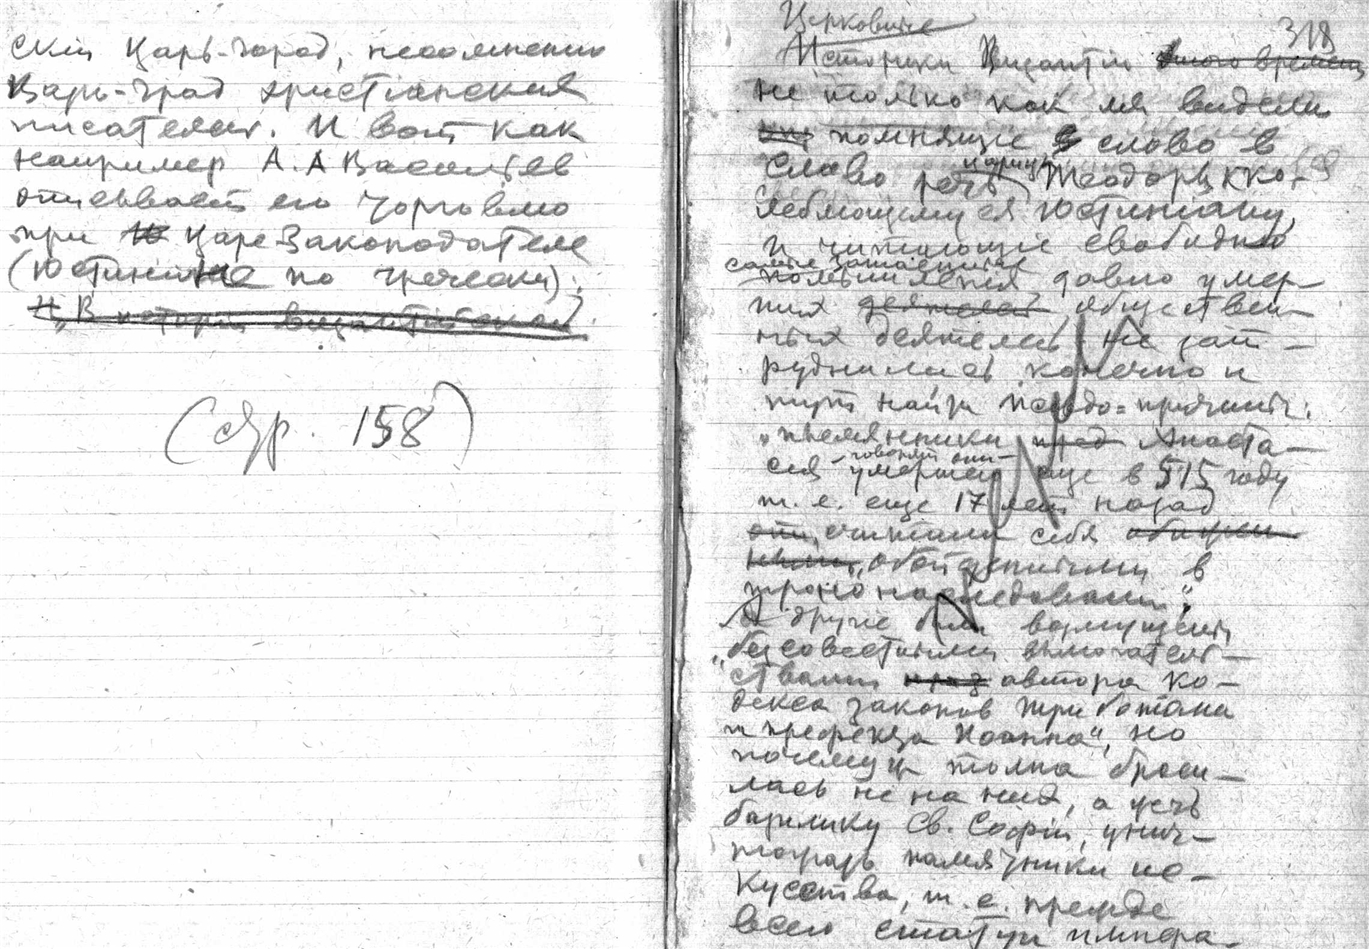 ский Царь-город, несомненно
Царь-град христiанских
писателей. И вот как
например А. А Васильев
описывает его торговлю
при Царе-Законодателе
(Юстинiане по гречески).
В исторiи византiйской
(стр. 158)
Церковные
318
Историки Византiи того времени
не только как мы видели
помнящiе слово в
слово речь царицы Теодоры к ко-
леблющемуся Юстинiану,
и читающiе свободно
самые затаенныя
помышленiя давно умер-
ших деятелей обществен-
ных деятелей не зат-
руднились конечно и
тут найти псевдо=причины:
„племянники Анаста-
сiя – говорят они –
умершего еще в 515 году
т. е. еще 17 лет назад
считали себя
обойденными в
трононаследованiи“,
А другiе были возмущены
„безсовестными вымогатель-
ствами автора ко-
декса законов Трибонiана
и префекта Иоанна“, но
почемуж толпа броси-
лась не на них, а жечь
базилику Св. Софiи, унич-
тожать памятники ис-
кусства, т. е. прежде
всего статуи импера